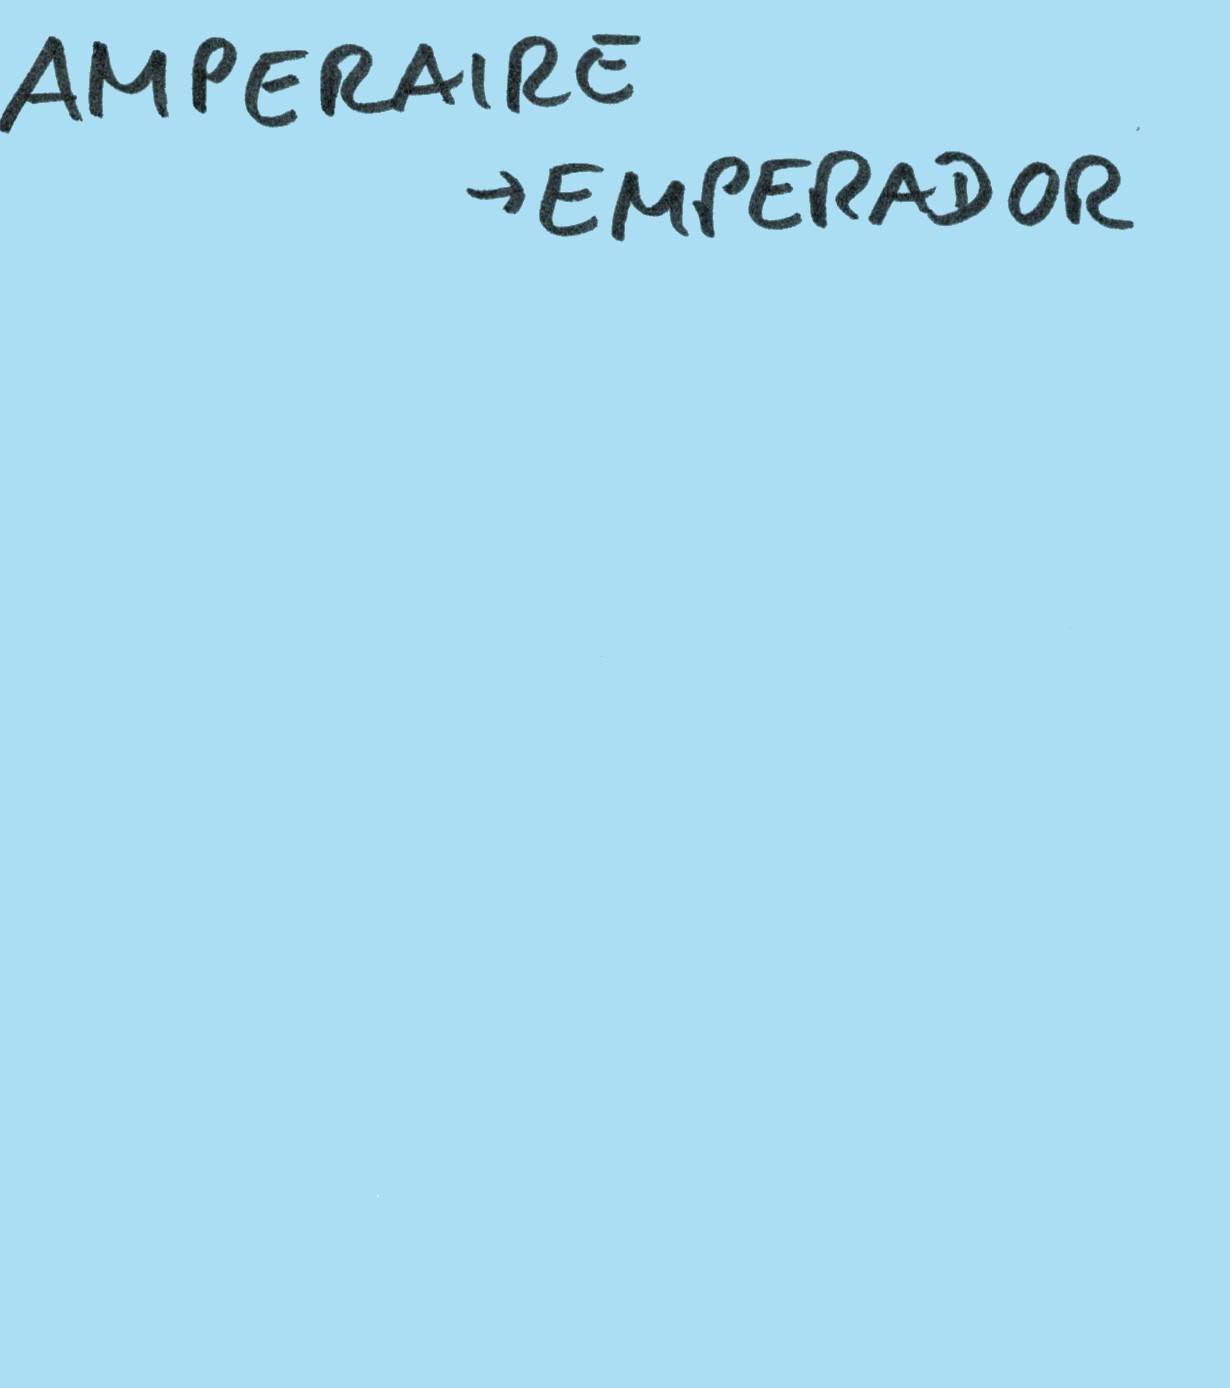 AMPERAIRE
→EMPERADOR